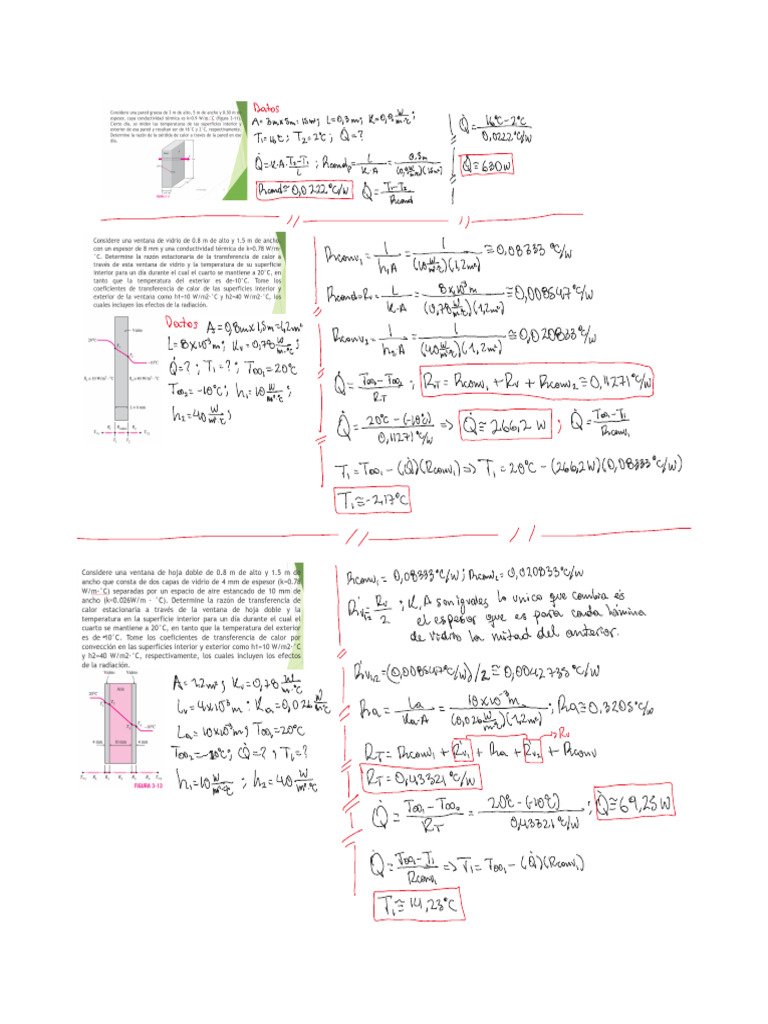 Considere una pared gruesa de 3 m de alto, 5 m de ancho y 0.30 m de
espesor, cuya conductividad térmica es k=0.9 W/m·°C (figura 3-11).
Cierto día, se miden las temperaturas de las superficies interior y
exterior de esa pared y resultan ser de 16°C y 2°C, respectivamente.
Determine la razón de la pérdida de calor a través de la pared en ese
día.
Datos
A=3m×5m=15m²; L=0,3m; K=0,9 W/m·°C;
T₁=16°C; T₂=2°C; Q̇=?
Q̇=K·A·T₂-T₁/L; Rcond=L/K·A=0.3m/(0,9 W/m·°C)(15m²)
Rcond≅0,0222°C/W Q̇=T₁-T₂/Rcond
Q̇=16°C-2°C/0,0222°C/W
Q̇≅630W
Considere una ventana de vidrio de 0.8 m de alto y 1.5 m de ancho
con un espesor de 8 mm y una conductividad térmica de k=0.78 W/m·
°C. Determine la razón estacionaria de la transferencia de calor a
través de esta ventana de vidrio y la temperatura de su superficie
interior para un día durante el cual el cuarto se mantiene a 20°C, en
tanto que la temperatura del exterior es de-10°C. Tome los
coeficientes de transferencia de calor de las superficies interior y
exterior de la ventana como h1=10 W/m2·°C y h2=40 W/m2·°C, los
cuales incluyen los efectos de la radiación.
Datos A=0,8m×1,5m=1,2m²
L=8×10⁻³m; Kv=0,78 W/m·°C;
Q̇=?; T₁=?; T∞₁=20°C
T∞₂=-10°C; h₁=10 W/m²·°C;
h₂=40 W/m²·°C;
Vidrio
20°C
T₁
T₂
-10°C
h₁=10 W/m²·°C
h₂=40 W/m²·°C
L = 8 mm
Rconv₁=1/h₁A=1/(10 W/m²·°C)(1,2m²)≅0,08333°C/W
Rcond=Rv=L/K·A=8×10⁻³m/(0,78 W/m·°C)(1,2m²)≅0,008547°C/W
Rconv₂=1/h₂A=1/(40 W/m²·°C)(1,2m²)≅0,020833°C/W
Q̇=T∞₁-T∞₂/RT; RT=Rconv₁+Rv+Rconv₂≅0,11271°C/W
Q̇=20°C-(-10°C)/0,11271°C/W=>Q̇≅266,2W; Q̇=T∞₁-T₁/Rconv₁
T₁=T∞₁-(Q̇)(Rconv₁)=>T₁=20°C-(266,2W)(0,08333°C/W)
T₁≅-2,17°C
Considere una ventana de hoja doble de 0.8 m de alto y 1.5 m de
ancho que consta de dos capas de vidrio de 4 mm de espesor (k=0.78
W/m·°C) separadas por un espacio de aire estancado de 10 mm de
ancho (k=0.026W/m · °C). Determine la razón de transferencia de
calor estacionaria a través de la ventana de hoja doble y la
temperatura en la superficie interior para un día durante el cual el
cuarto se mantiene a 20°C, en tanto que la temperatura del exterior
es de -10°C. Tome los coeficientes de transferencia de calor por
convección en las superficies interior y exterior como h1=10 W/m2·°C
y h2=40 W/m2·°C, respectivamente, los cuales incluyen los efectos
de la radiación.
A=1,2m²; Kv=0,78 W/m·°C
Lv=4×10⁻³m; Ka=0,026 W/m·°C
La=10×10⁻³m; T∞₁=20°C
T∞₂=-10°C; Q̇=?; T₁=?
h₁=10 W/m²·°C; h₂=40 W/m²·°C
Vidrio Vidrio
Aire
20°C
-10°C
4 mm 10 mm 4 mm
FIGURA 3-13
Rconv₁=0,08333°C/W; Rconv₂=0,020833°C/W
R'v₁,₂=Rv/2; K, A son iguales lo unico que cambia es
el espesor que es para cada lámina
de vidrio la mitad del anterior.
R'v₁,₂=(0,008547°C/W)/2≅0,0042735°C/W
Ra=La/Ka·A=10×10⁻³m/(0,026 W/m·°C)(1,2m²); Ra≅0,3205°C/W
Rv
RT=Rconv₁+R'v₁+Ra+R'v₂+Rconv
RT≅0,43321°C/W
Q̇=T∞₁-T∞₂/RT=20°C-(-10°C)/0,43321°C/W; Q̇≅69,25W
Q̇=T∞₁-T₁/Rconv₁=>T₁=T∞₁-(Q̇)(Rconv₁)
T₁≅14,23°C